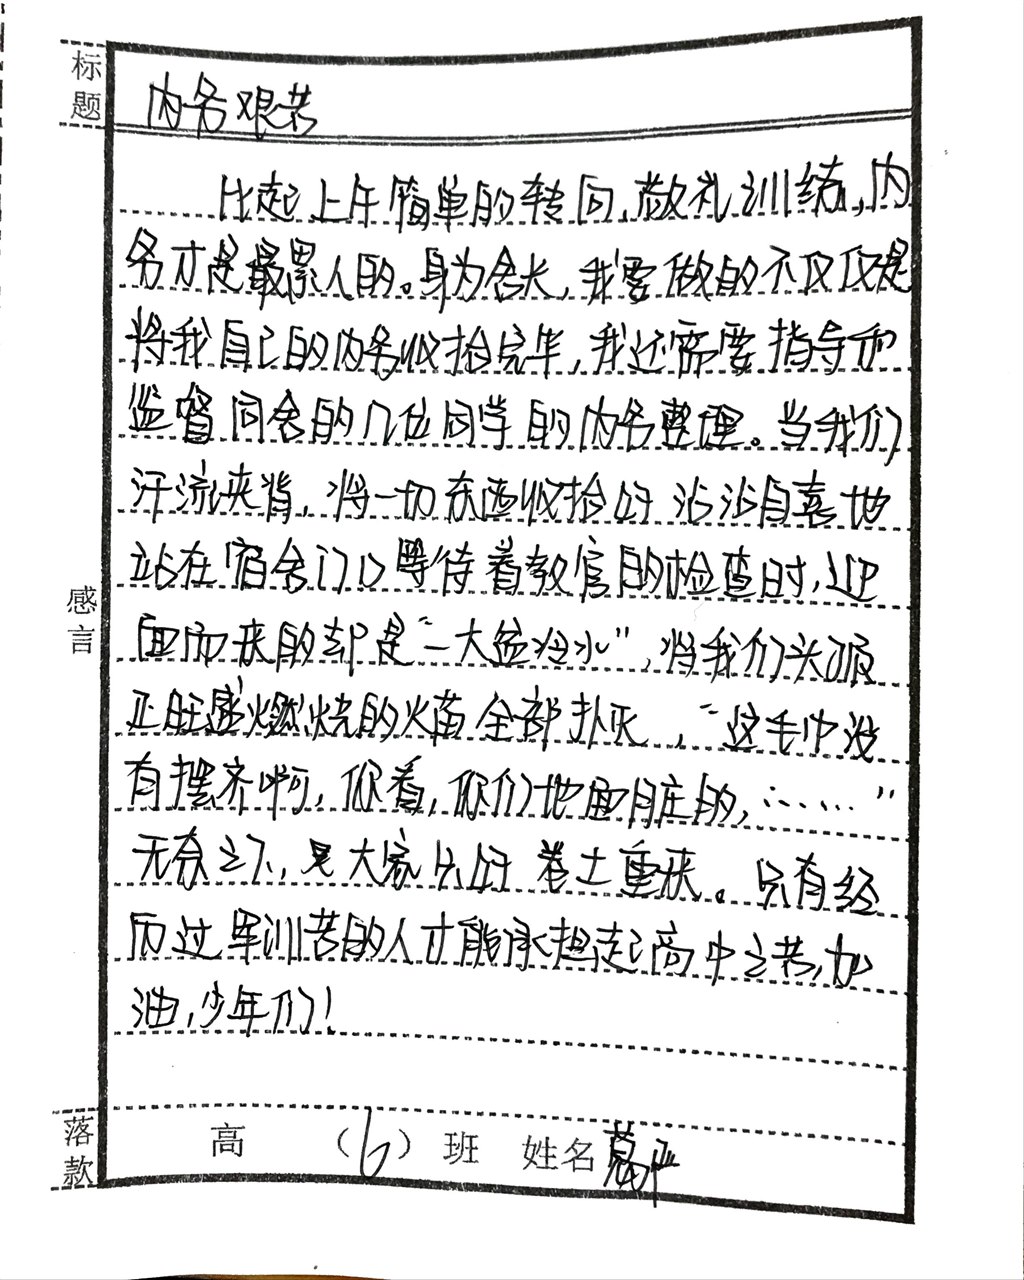 标题
内务艰苦
比起上午简单的转向、敬礼训练，内
务才是最累人的。身为舍长，我要做的不仅仅是
将我自己的内务收拾完毕，我还需要指导和
监督同舍的几位同学的内务整理。当我们
汗流夹背，将一切东西收拾好 沾沾自喜地
站在宿舍门口等待着教官的检查时，迎
面而来的却是“一大盆冷水”，将我们头顶
正旺盛燃烧的火苗全部扑灭，“这毛巾没
有摆齐啊，你看，你们地面脏的，……”
无奈之下，大家只好 卷土重来。只有经
历过军训苦的人才能承担起高中之苦，加
油，少年们！
感言
落款
高 （6）班 姓名 葛